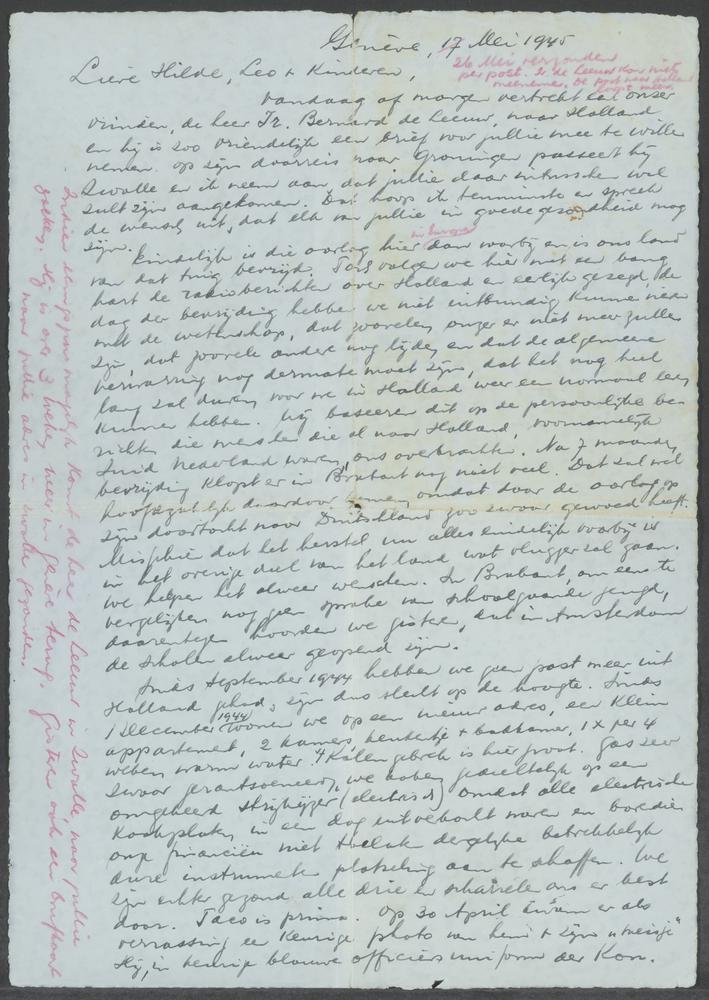 Genève, 17 Mei 1945
26 Mei verzonden
per post. Ir. de Leeuw kon niets
meenemen. De post naar Holland
loopt weer.
Lieve Hilde, Leo + Kinderen,
Vandaag of morgen vertrekt een onzer
vrienden, de heer Ir. Bernard de Leeuw, naar Holland
en hij is zoo vriendelijk een brief voor jullie mee te willen
nemen. Op zijn doorreis naar Groningen passeert hij
Zwolle en ik neem aan, dat jullie daar intusschen wel
zult zijn aangekomen. Dat hoop ik tenminste en spreek
de wensch uit, dat elk van jullie in goede gezondheid mag
zijn.
in Europa
Eindelijk is die oorlog hier dan voorbij en is ons land
van dat tuig bevrijd. Toch volgen we hier met een bang
hart de radioberichten over Holland en eerlijk gezegd, de
dag der bevrijding hebben we niet uitbundig kunnen vieren
met de wetenschap, dat zoovelen onzer er niet meer zullen
zijn, dat zoovele anderen nog lijden en dat de algemeene
verwarring nog dermate moet zijn, dat het nog heel
lang zal duren voor we in Holland weer een normaal leven
kunnen hebben. Wij baseeren dit op de persoonlijke be-
richten die menschen die al naar Holland, voornamelijk
Zuid Nederland waren, ons overbrachten. Na 7 maanden
bevrijding klopt er in Brabant nog niet veel. Dat zal wel
hoofdzakelijk daardoor komen, omdat daar de oorlog op
zijn doortocht naar Duitschland zoo zwaar gewoed heeft.
Misschien dat het herstel nu alles eindelijk voorbij is
in het overige deel van het land wat vlugger zal gaan.
We hopen het alweer wenschen. In Brabant, om eens te
vergelijken nog geen sprake van schoolgaande jeugd,
daarentegen hoorden we gisteren, dat in Amsterdam
de scholen alweer geopend zijn.
Sinds September 1944 hebben we geen post meer uit
Holland gehad, zijn dus slecht op de hoogte. Sinds
1 December (1944) wonen we op een nieuw adres, een klein
appartement, 2 kamers, keukentje + badkamer, 1 x per 4
weken warm water. 't Kolengebrek is hier groot. Gas zeer
zwaar gerantsoeneerd, we koken gedeeltelijk op een
omgekeerd strijkijzer (electrisch) omdat alle electrische
kookplaten in een dag uitverkocht waren en bovendien
onze financiën niet toelaten dergelijke betrekkelijk
dure instrumenten plotseling aan te schaffen. We
zijn echter gezond alle drie en scharrelen ons er best
door. Taco is prima. Op 30 April kwam er als
verrassing een keurige photo van hem + zijn "meisje"
Hij, in keurig blauwe officiersuniform der Kon.
Indien eenigszins mogelijk komt de heer de Leeuw in Zwolle, naar jullie
zoeken. Hij is over 3 weken weer in Genève terug. Gisteren ook een briefkaart
naar jullie adres in Zwolle gezonden.